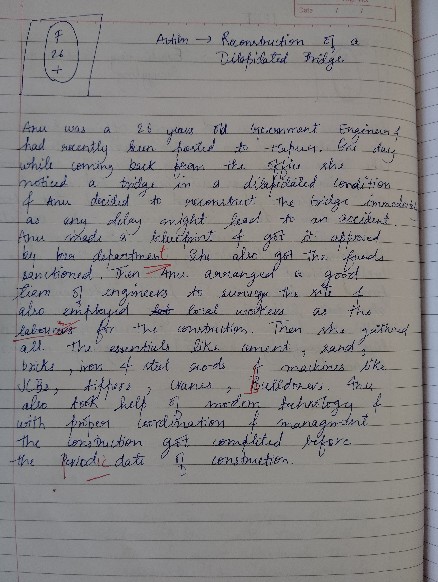 Date / /
F
26
+
Action → Reconstruction of a
Dilapilated Bridge
Anu was a 26 years old Government Engineer &
had recently been posted to Hapur. One day
while coming back from the office she
noticed a bridge in a dilapidated condition
& Anu decided to reconstruct the bridge
as any delay might lead to an accident.
Anu made a blueprint & got it approved
by her department. She also got the funds
sanctioned. Then Anu arranged a good
team of engineers to survey the site &
also employed local workers as the
labourers for the construction. Then she gathered
all the essentials like cement, sand,
bricks, iron & steel rods & machines like
JCBs, tippers, cranes, Bulldozers. Anu
also took help of modern technology &
with proper coordination & managment
the construction got completed before
the Periodic date of construction.